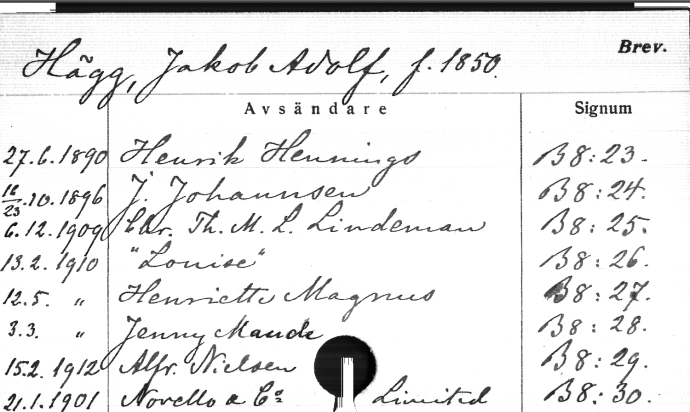 Brev.
Hägg, Jakob Adolf, f. 1850.
Avsändare Signum
27.6.1890 Henrik Hennings B 8:23.
16/23.10.1896 J. Johannsen B 8:24.
6.12.1909 Chr. Th. M. L. Lindeman B 8:25.
13.2.1910 "Louise" B 8:26.
12.5. „ Henriette Magnus B 8:27.
3.3. „ Jenny Maude B 8:28.
15.2.1912 Alfr. Nielsen B 8:29.
21.1.1901 Novello & Co Limited B 8:30.